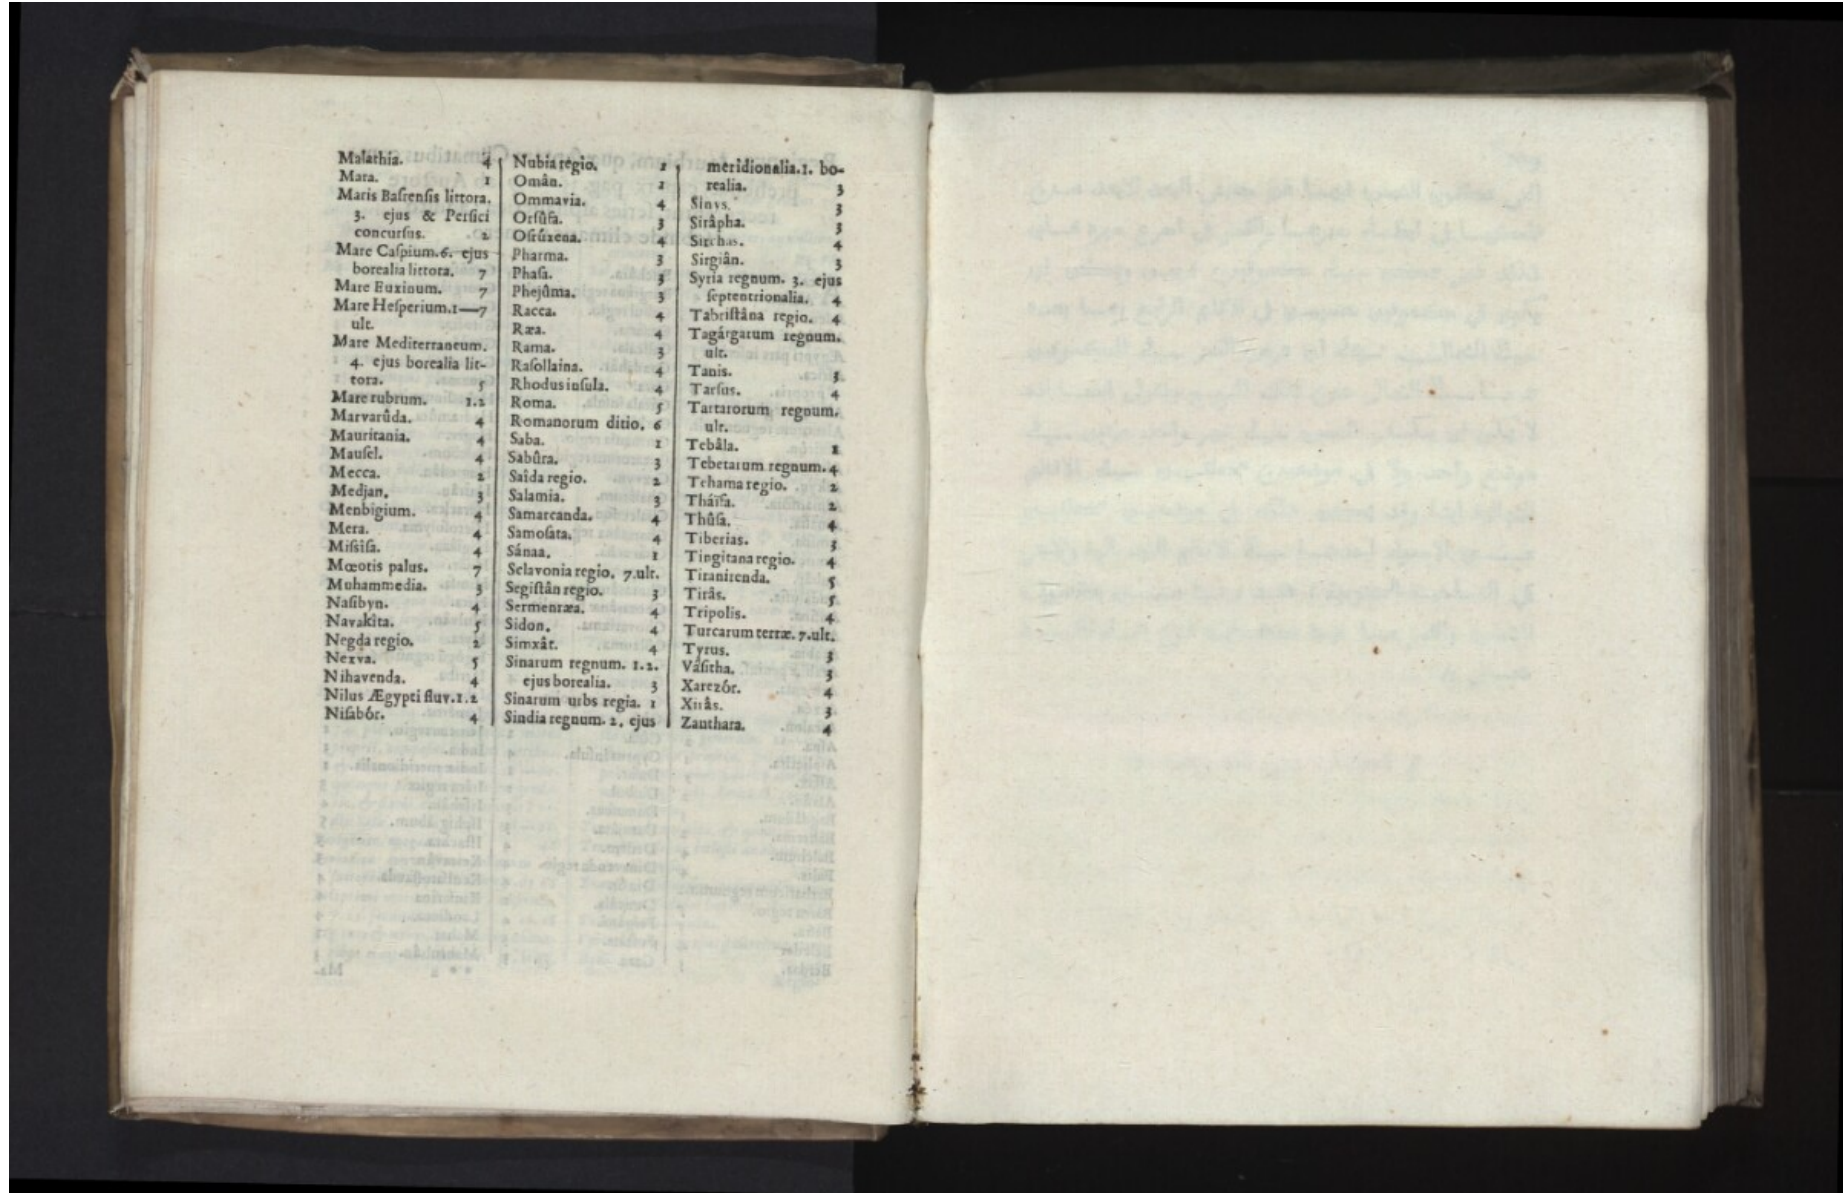 Malathia. 4
Mara. 1
Maris Basrensis littora.
3. ejus & Persici
concursus. 2
Mare Caspium. 6. ejus
borealia littora. 7
Mare Euxinum. 7
Mare Hesperium. 1—7
ult.
Mare Mediterraneum.
4. ejus borealia lit-
tora. 5
Mare rubrum. 1.2
Marvarûda. 4
Mauritania. 4
Mausel. 4
Mecca. 2
Medjan. 3
Menbigium. 4
Mera. 4
Misîsa. 4
Mœotis palus. 7
Muhammedia. 3
Nasibyn. 4
Navakîta. 5
Negda regio. 2
Nexva. 5
Nihavenda. 4
Nilus Ægypti fluv. 1.2
Nisabór. 4
Nubia regio. 1
Omân. 1
Ommavia. 4
Orsûfa. 3
Osrúxena. 4
Pharma. 3
Phasa. 3
Phejûma. 3
Racca. 4
Ræa. 4
Rama. 3
Rasollaina. 4
Rhodus insula. 4
Roma. 5
Romanorum ditio. 6
Saba. 1
Sabûra. 3
Saîda regio. 2
Salamia. 3
Samarcanda. 4
Samosata. 4
Sánaa. 1
Sclavonia regio. 7. ult.
Segistân regio. 3
Sermenræa. 4
Sidon. 4
Simxât. 4
Sinarum regnum. 1.2.
ejus borealia. 3
Sinarum urbs regia. 1
Sindia regnum. 2. ejus
meridionalia. 1. bo-
realia. 3
Sinys. 3
Sirâpha. 3
Sirchas. 4
Sirgiân. 3
Syria regnum. 3. ejus
septentrionalia. 4
Tabristâna regio. 4
Tagárgarum regnum.
ult.
Tanis. 3
Tarsus. 4
Tartarorum regnum.
ult.
Tebâla. 2
Tebetarum regnum. 4
Tehama regio. 2
Tháïfa. 2
Thûsa. 4
Tiberias. 3
Tingitana regio. 4
Tiranirenda. 5
Tirâs. 5
Tripolis. 4
Turcarum terræ. 7. ult.
Tyrus. 3
Vâsitha. 3
Xarezór. 4
Xirâs. 3
Zanthara. 4